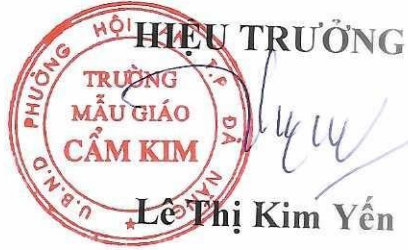 HIỆU TRƯỞNG
U.B.N.D PHƯỜNG HỘI AN T.P ĐÀ NẴNG
TRƯỜNG
MẪU GIÁO
CẨM KIM
Lê Thị Kim Yến